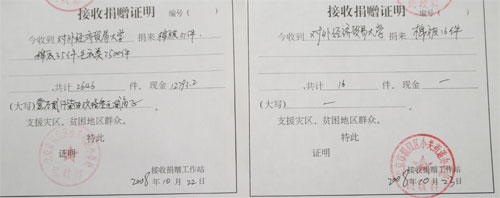 接收捐赠证明 编号（ ）
今收到 对外经济贸易大学 捐来 棉被11件
棉衣35件
共计 2646 件，现金
（大写）
支援灾区、贫困地区群众。
特此
证明
接收捐赠工作站
2008年10月22日
接收捐赠证明 编号（ ）
今收到 对外经济贸易大学 捐来 棉被16件
共计 16 件，现金 一
（大写） 一
支援灾区、贫困地区群众。
特此
证明
接收捐赠工作站
2008年10月23日